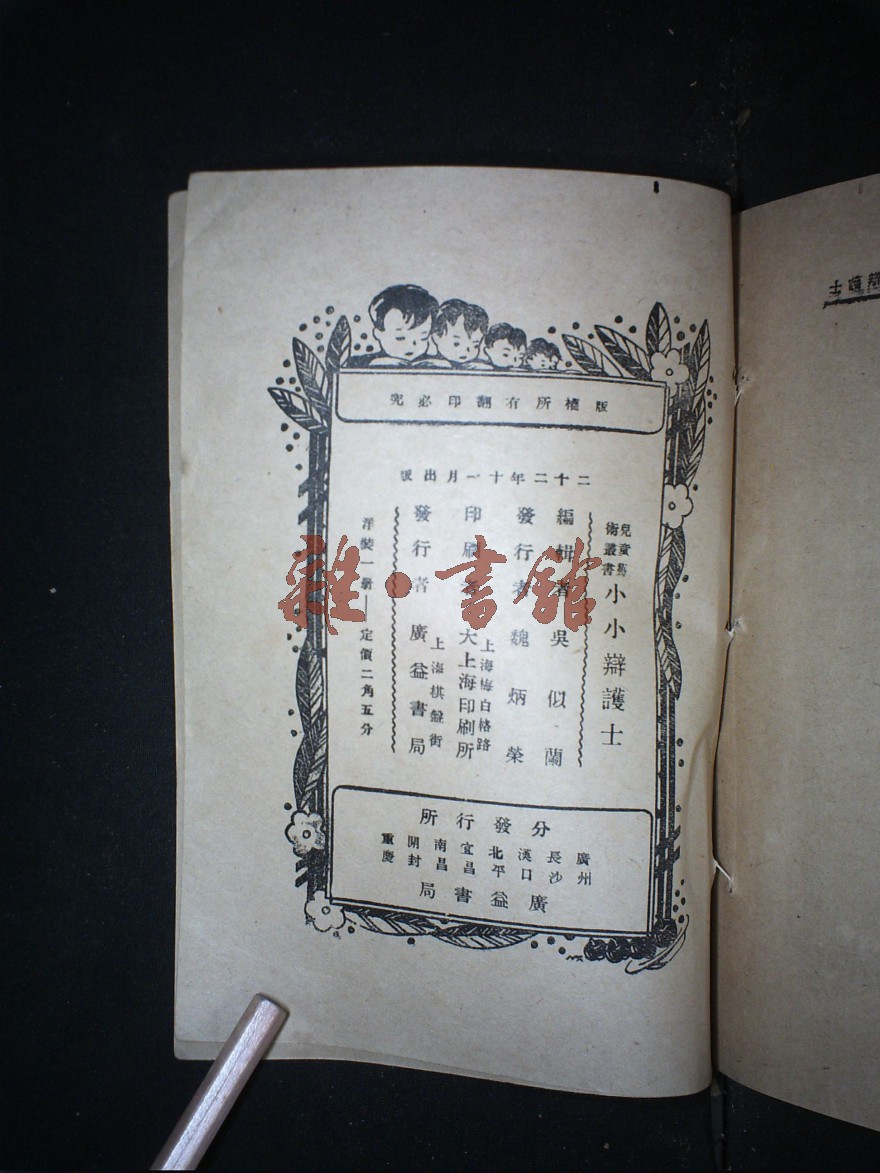 版權所有翻印必究
二十二年十一月出版
兒童藝術叢書
小小辯護士
編輯者 吳似蘭
發行者 魏炳榮
印刷者 大上海印刷所
上海梅白格路
發行者 廣益書局
上海棋盤街
洋裝一册——定價二角五分
分發行所
廣州 長沙 漢口 北平 宜昌 南昌 開封 重慶
廣益書局
雜·書館
辯護士